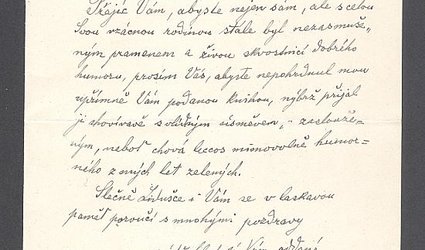 Přejíc Vám, abyste nejen sám, ale s celou
svou vzácnou rodinou stále byl nezasmuše-
ným pramenem a živou skvostnicí dobrého
humoru, prosím Vás, abyste nepohrdnul mou
upřímně Vám podanou knihou, nýbrž přijal
ji shovívavě s vlídným úsměvem, - zaslouže-
ným, neboť chová leccos mimovolně humor-
ného z mých let zelených.
Slečně Zdušce i Vám se v laskavou
paměť poroučí s mnohými pozdravy
Vám oddaný